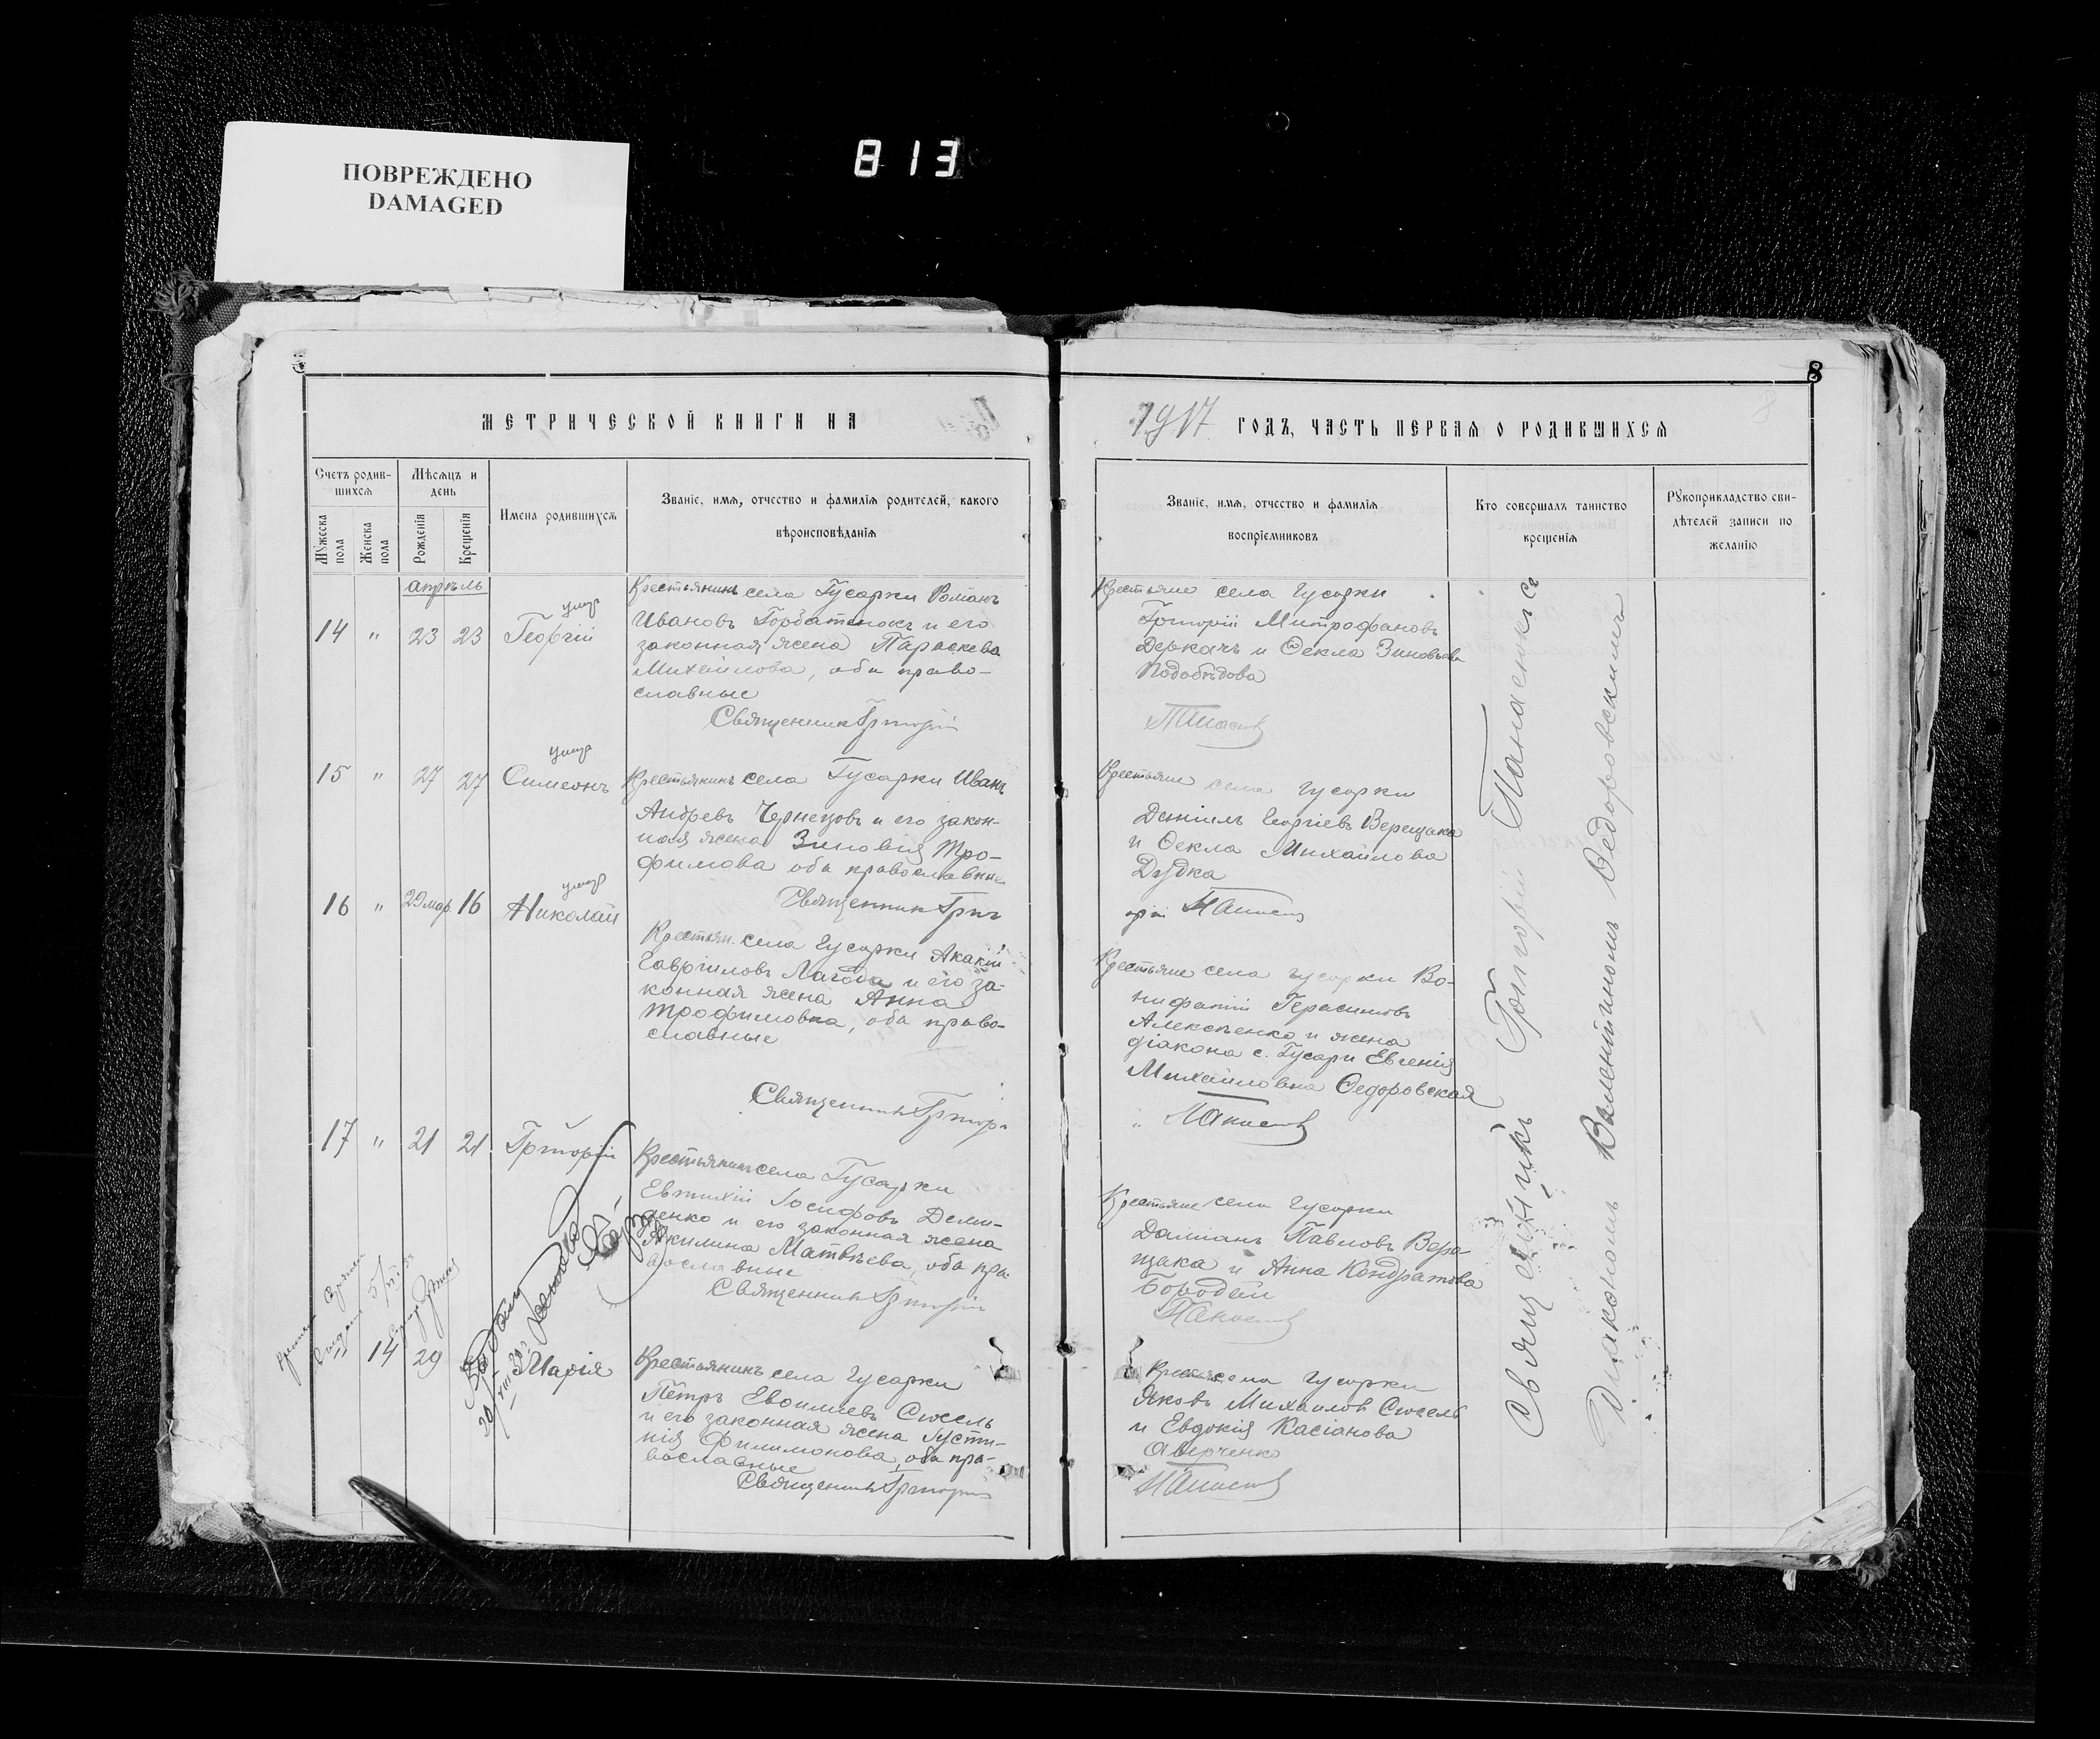 ПОВРЕЖДЕНО
DAMAGED
813
8
МЕТРИЧЕСКОЙ КНИГИ НА
1917 ГОДЪ, ЧАСТЬ ПЕРВАЯ О РОДИВШИХСЯ
Счетъ родив-
шихся
Мужеска
пола
Женска
пола
Мѣсяцъ и
день
Рожденія
Крещенія
Имена родившихся
Званіе, имя, отчество и фамилія родителей, какого
вѣроисповѣданія
Званіе, имя, отчество и фамилія
воспріемниковъ
Кто совершалъ таинство
крещенія
Рукоприкладство сви-
дѣтелей записи по
желанію
апрѣль
14 " 23 23 Георгій
умер
Крестьянинъ села Гусарки Романъ
Ивановъ Горбатенокъ и его
законная жена Параскева
Михайлова, оба право-
славные
Священник Григорій
Крестьяне села Гусарки
Григорій Митрофановъ
Деркачъ и Ѳекла Зиновьева
Подобѣдова
15 " 27 27 Симеонъ
умер
Крестьянинъ села Гусарки Иванъ
Андреевъ Чернецовъ и его закон-
ная жена Зиновія Тро-
фимова оба православные
Священник Григ
Крестьяне села Гусарки
Даніилъ Георгіевъ Верещака
и Ѳекла Михайлова
Дудка
орій
16 " 29 мар 16 Николай
умер
Крестьян. села Гусарки Акакій
Гавриловъ Лагода и его за-
конная жена Анна
Трофимовна, оба право-
славные
Священник Григор
Крестьяне села Гусарки Во-
нифатій Герасимовъ
Алексѣенко и жена
діакона с. Гусарки Евгенія
Михайловна Ѳедоровская
17 " 21 21 Григорій
Крестьянинъ села Гусарки
Евтихій Іосифовъ Деми-
денко и его законная жена
Акилина Матвѣева, оба пра-
вославные
Священникъ Григорій
Крестьяне села Гусарки
Даміанъ Павловъ Вере-
щака и Анна Кондратова
Бородай
" 14 29 Марія
Крестьянинъ села Гусарки
Петръ Евѳиміевъ Сюсель
и его законная жена Іусти-
нія Филимонова, оба пра-
вославные
Священникъ Григорій
Крестьяне села Гусарки
Яковъ Михайловъ Сюсель
и Евдокія Касіанова
Аверченко
Священникъ Григорій
Діакономъ Валентиномъ Ѳедоровскимъ